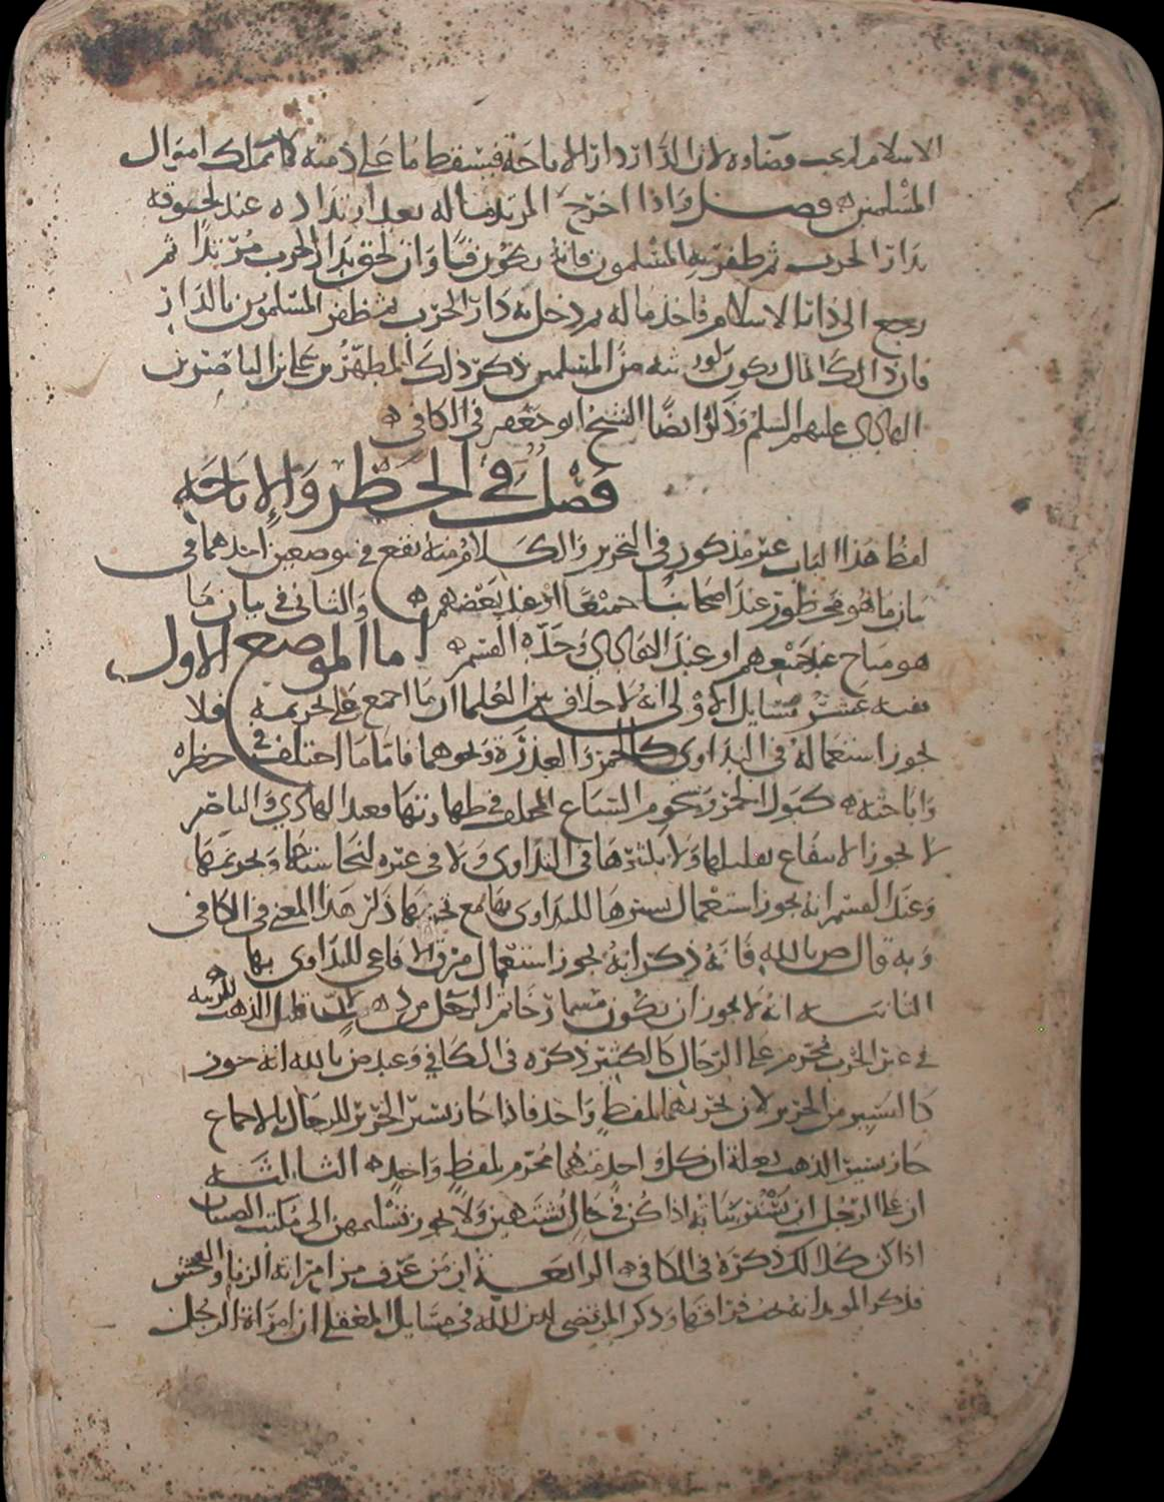 الاسلام لم يجب قضاوه لان الدار دار الاباحة فيسقط ما على ذمته كما تملك اموال
المسلمين فصل واذا اخرج المرتد ماله بعد ارتداده عند لحوقه
بدار الحرب ثم ظفر به المسلمون فانه يكون فيا وان لحق بدار الحرب مرتدا ثم
رجع الى دار الاسلام فاخذ ماله ثم دخل به دار الحرب ثم ظفر المسلمون بالدار
فان ذلك المال يكون لورثته من المسلمين ذكر ذلك المطهر بن علي بن الناصر بن
الهادي عليهم السلم وذكر ايضا الشيخ ابو جعفر في الكافي
فصل في الحظر والاباحة
لفظ هذا الباب غير مذكور في التحرير والكلام منه يقع في موضعين احدهما في
بيان ما هو محظور عند اصحابنا جميعا او عند بعضهم والثاني في بيان ما
هو مباح عند جميعهم او عند الهادي وحده القسم اما الموضع الاول
ففيه عشر مسايل الاولى انه لا خلاف بين العلما ان ما اجمع على تحريمه فلا
يجوز استعماله في التداوي كالخمر والعذرة ونحوهما فاما ما اختلف في حظره
واباحته كبول الخمر ونحوم السباع المختلف في طهارتها فعند الهادي والناصر
لا يجوز الانتفاع بقليلها ولا بكثيرها في التداوي ولا في غيره لنجاستها وتحريمها
وعند القسم انه يجوز استعمال يسيرها للتداوي بها مع تحريمها ذكر هذا المعنى في الكافي
وبه قال ض بالله فانه ذكر انه يجوز استعمال مرق الافاعي للتداوي بها
الثانية انه لا يجوز ان يكون مسمار خاتم الرجل من ذهب لان قليل الذهب للزينة
في غير الحرب محرم على الرجال كالكثير ذكره في الكافي وعند ض بالله انه يجوز
كاليسير من الحرير لان تحريمهما بلفظ واحد فاذا جاز يسير الحرير للرجال بالاجماع
جاز يسير الذهب بعلة ان كل واحد منهما محرم بلفظ واحد الثالثة
ان على الرجل ان يستر بناته اذا كن في حال يشتهين ولا يجوز تسليمهن الى مكتب الصبيان
اذا كن كذلك ذكره في الكافي الرابعة ان من عرف من امراته الزنا والفحش
فذكر المويد انه يجب فراقها وذكر المرتضى لدين الله في مسايل المعقلي ان امراة الرجل